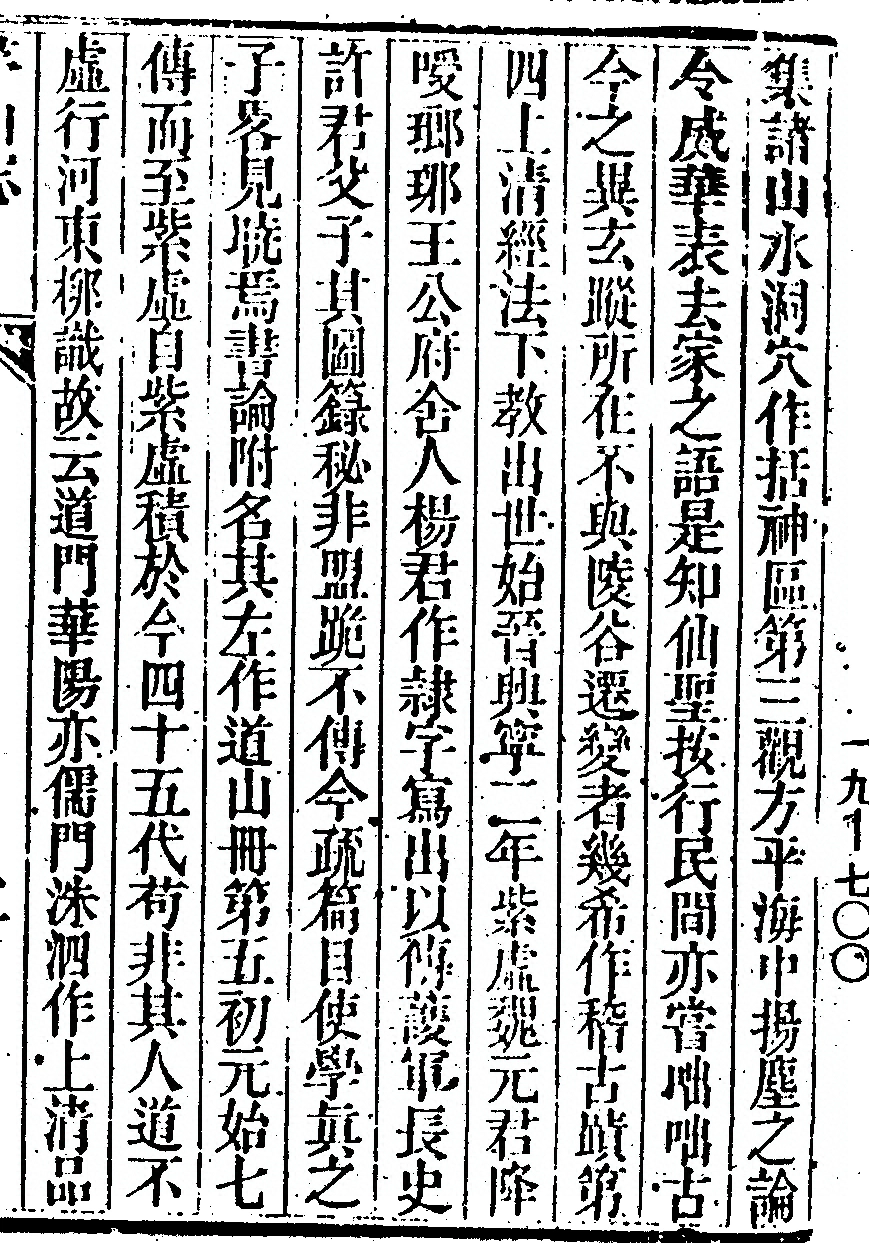 集諸山水洞穴作括神區第三觀方平海中揚塵之論
令威華表去家之語是知仙聖按行民間亦嘗咄咄古
今之異玄蹤所在不與陵谷遷變者幾希作稽古蹟第
四上清經法下教出世始晉興寧二年紫虛魏元君降
噯瑯琊王公府舍人楊君作隸字寫出以傳護軍長史
許君父子其圖籙秘非盟跪不傳今疏篇目使學真之
子畧見㙡焉書論附名其左作道山冊第五初元始七
傳而至紫虛自紫虛積於今四十五代苟非其人道不
虛行河東柳識故云道門華陽亦儒門洙泗作上清品
一九一七〇〇